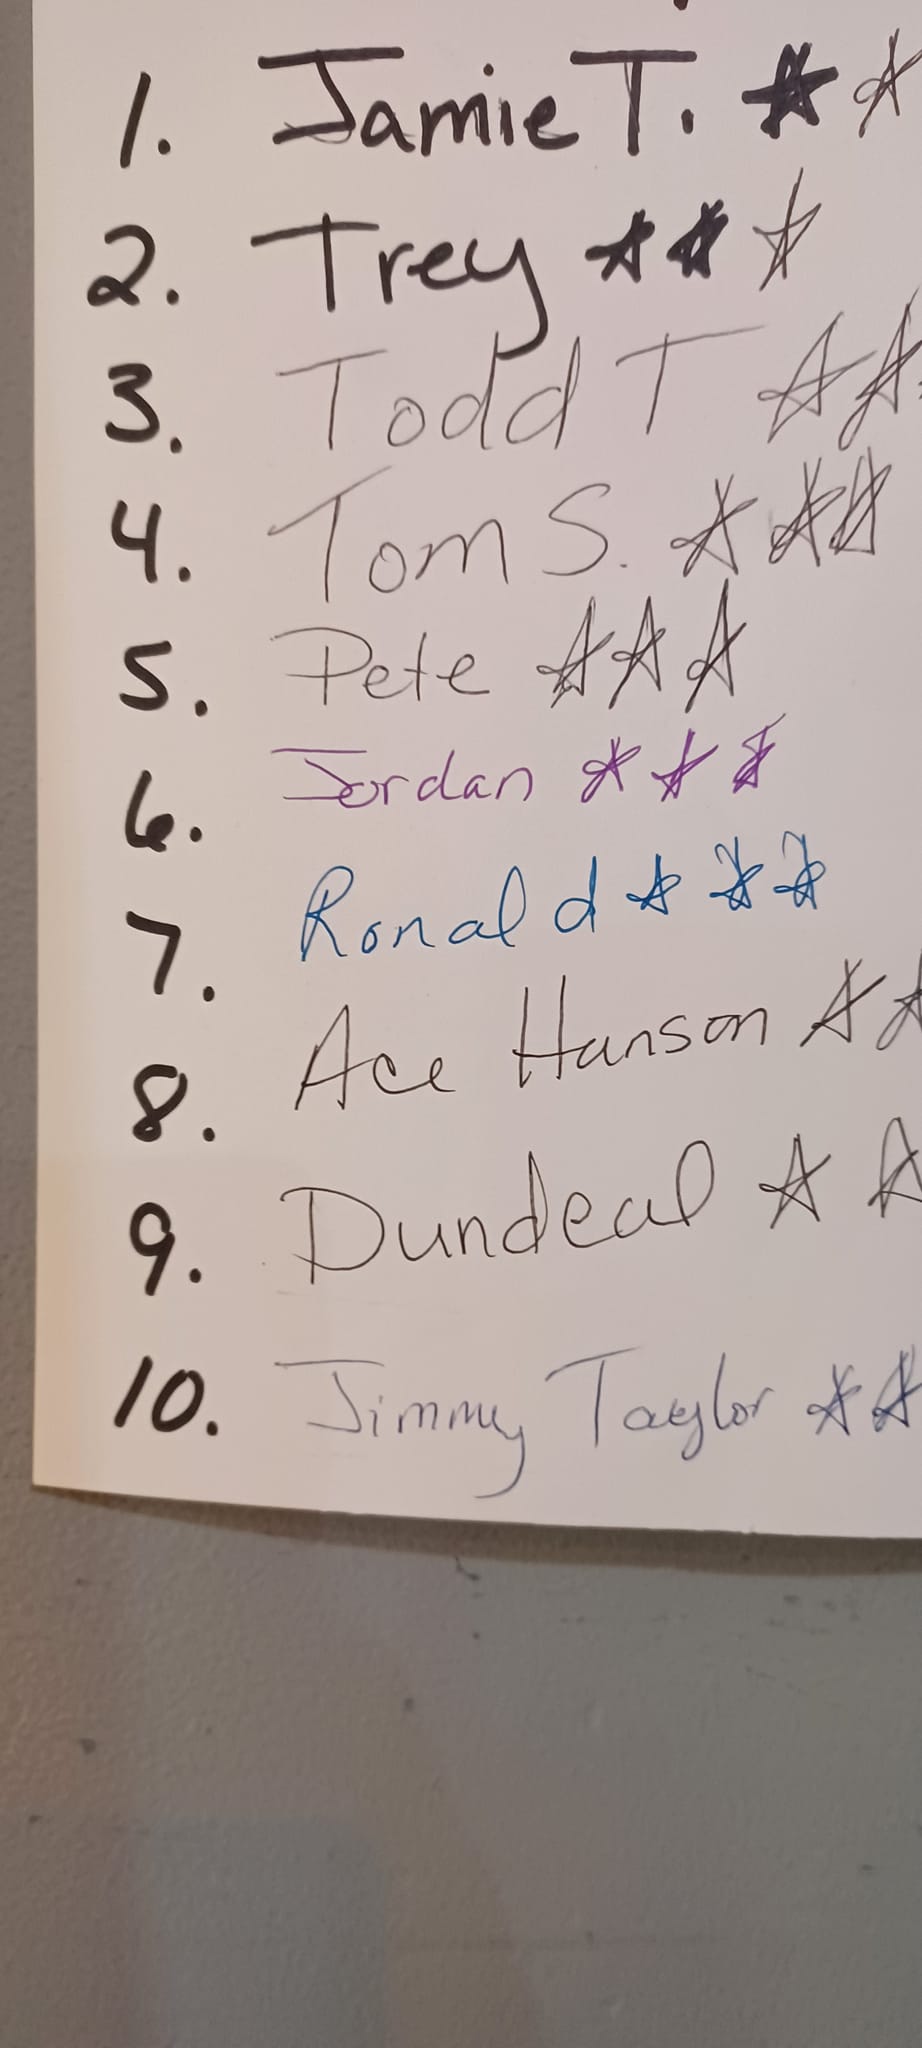 1. Jamie T. ☆ ☆
2. Trey ☆ ☆ ☆
3. Todd T ☆ ☆
4. Tom S. ☆ ☆ ☆
5. Pete ☆ ☆ ☆
6. Jordan ☆ ☆ ☆
7. Ronald ☆ ☆ ☆
8. Ace Hanson ☆ ☆
9. Dundeal ☆ ☆
10. Jimmy Taylor ☆ ☆